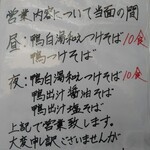 営業内容について当面の間
昼:鴨白湯和えつけそば10食
鴨つけそば
夜:鴨白湯和えつけそば10食
鴨出汁醤油そば
鴨出汁塩そば
上記で営業致します。
大変申し訳ございませんが